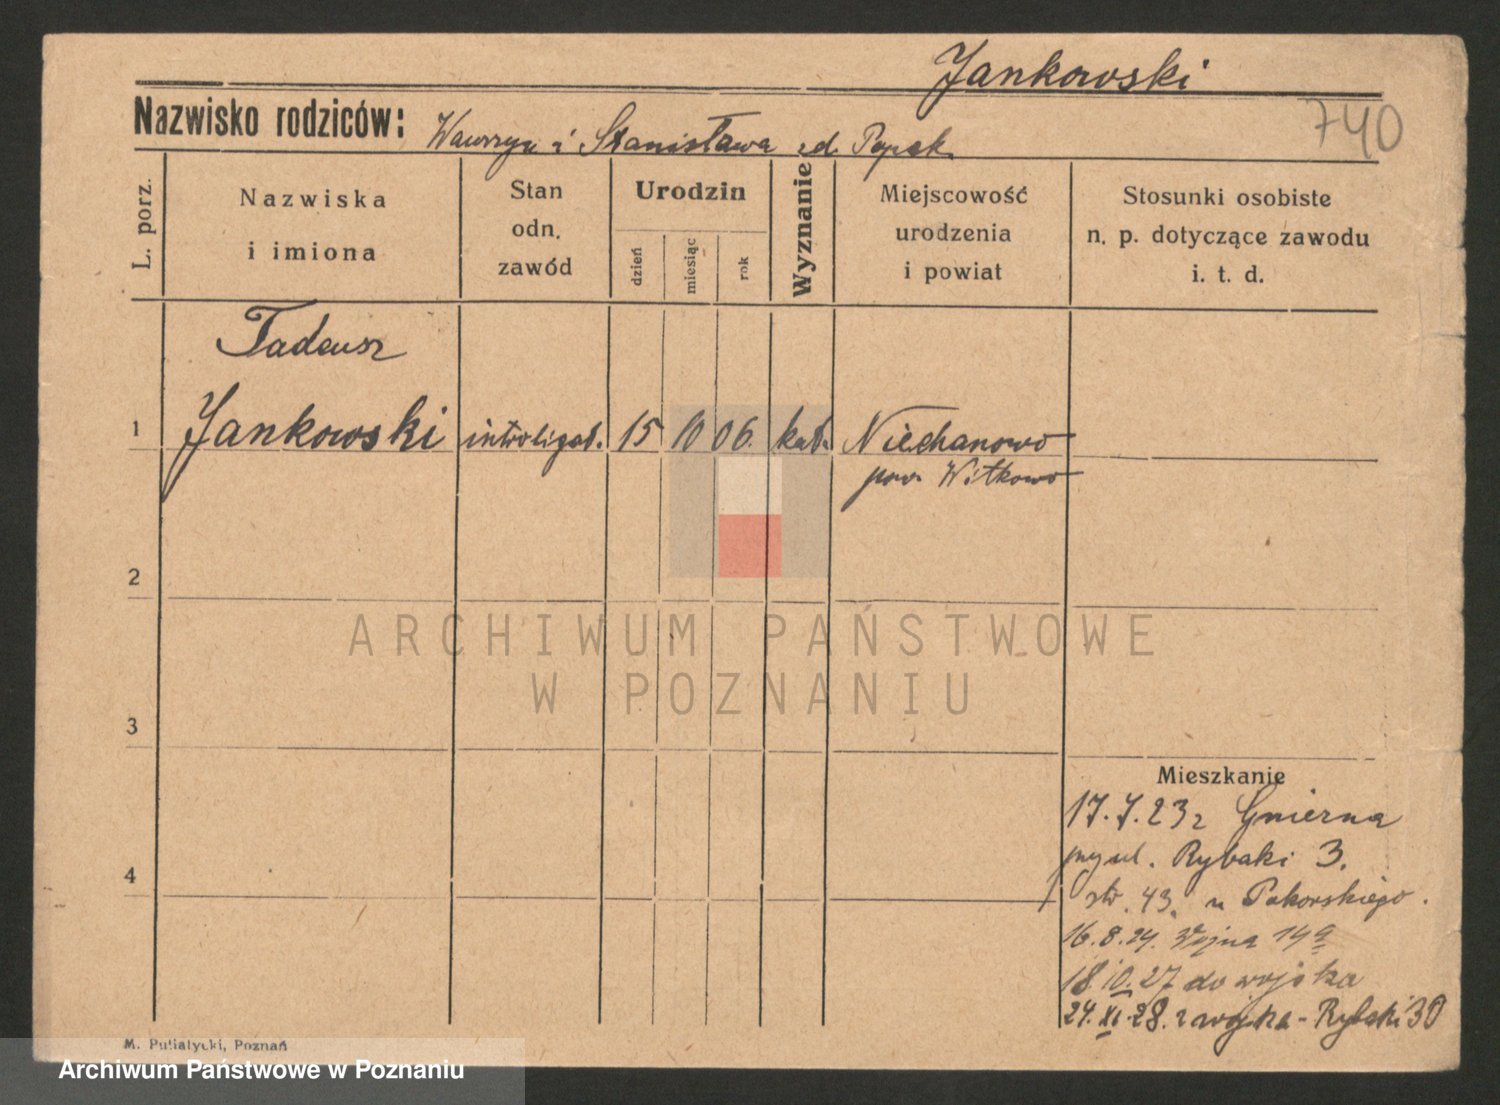 Jankowski
740
Nazwisko rodziców: Wawrzyn i Stanisława zd. Popek
L. porz.
Nazwiska
i imiona
Stan
odn.
zawód
Urodzin
dzień
miesiąc
rok
Wyznanie
Miejscowość
urodzenia
i powiat
Stosunki osobiste
n. p. dotyczące zawodu
i. t. d.
Tadeusz
1 Jankowski introligat. 15 10 06. kat. Niechanowo
pow. Witkowo
2
ARCHIWUM PAŃSTWOWE
W POZNANIU
3
Mieszkanie
17.7.23 z Gniezna
ul. Rybaki 3.
4
43. u Pokorskiego.
16.8.24. 14a
18.10.27 do wojska
24.XI.28. z wojska - Rybaki 30
M. Putiatycki, Poznań
Archiwum Państwowe w Poznaniu